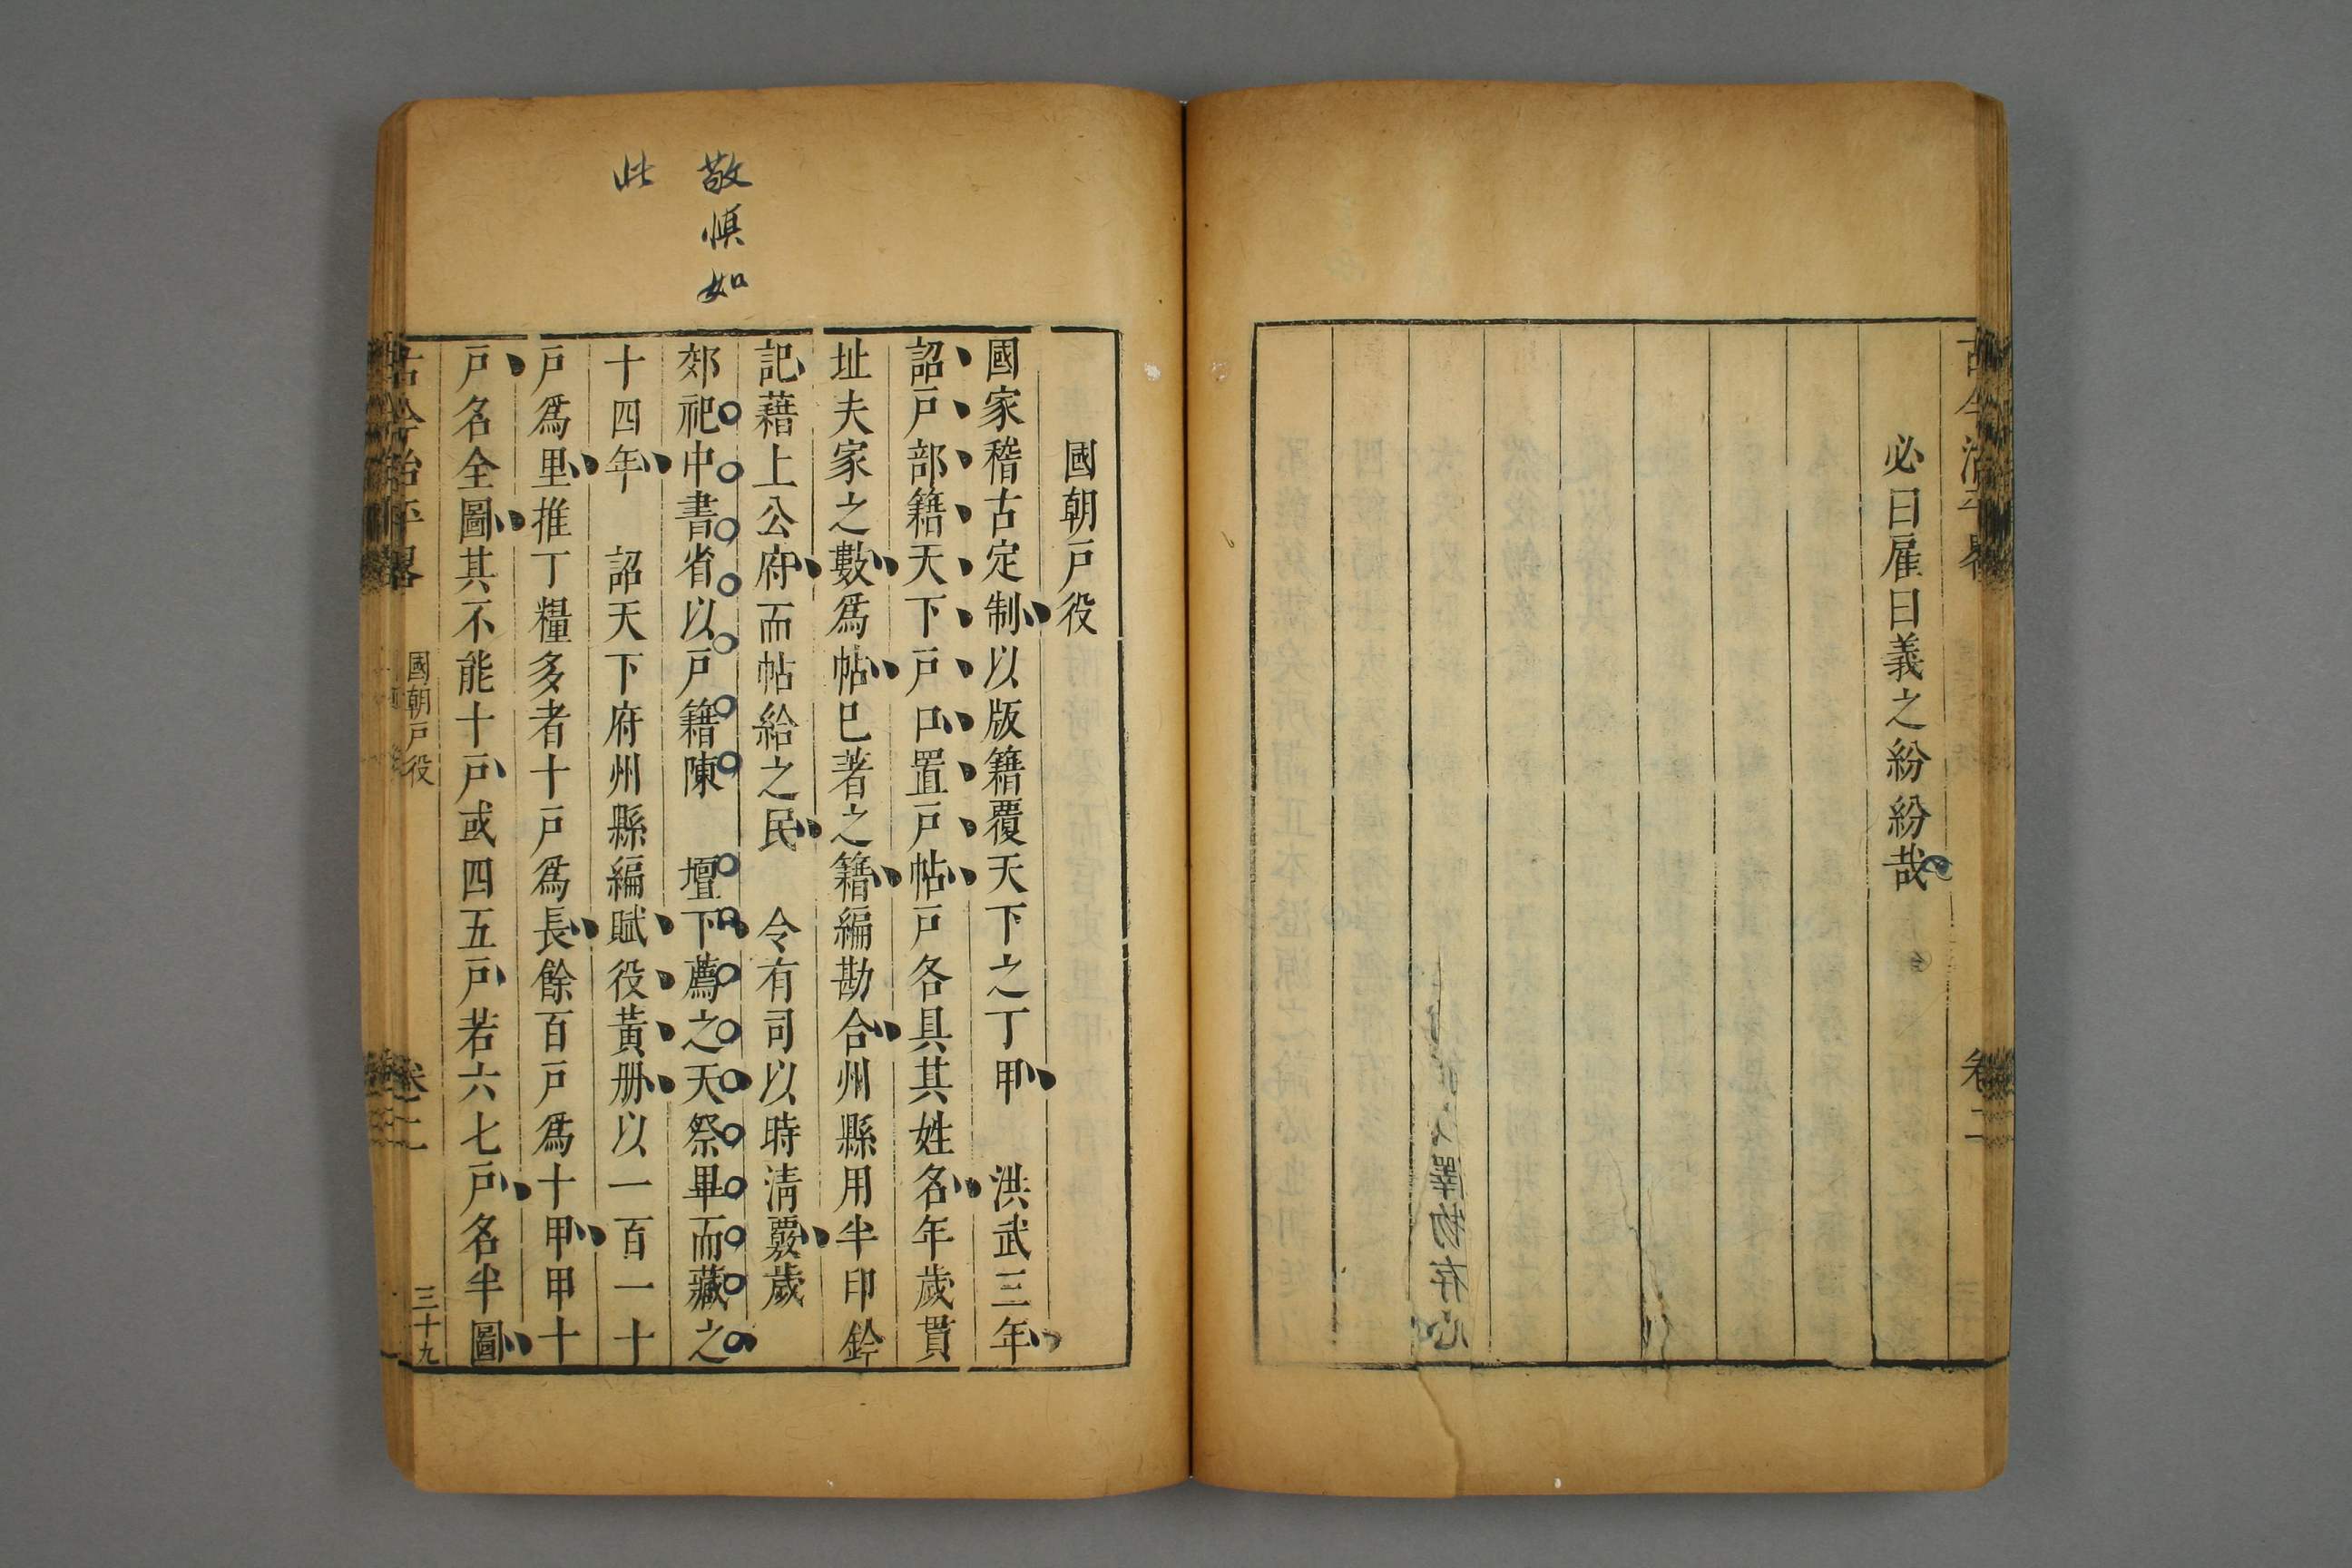 必曰雇曰義之紛紛哉
敬慎如
此
國朝戸役
國家稽古定制以版籍覆天下之丁甲　洪武三年
詔戸部籍天下戸口置戸帖戸各具其姓名年歲貫
址夫家之數爲帖已著之籍編勘合州縣用半印鈐
記藉上公府而帖給之民　令有司以時淸覈歲
郊祀中書省以戸籍陳　壇下薦之天祭畢而藏之
十四年　詔天下府州縣編賦役黃册以一百一十
戸爲里推丁糧多者十戸爲長餘百戸爲十甲甲十
戸名全圖其不能十戸或四五戸若六七戸名半圖
古今治平畧
國朝戸役
卷二
三十九